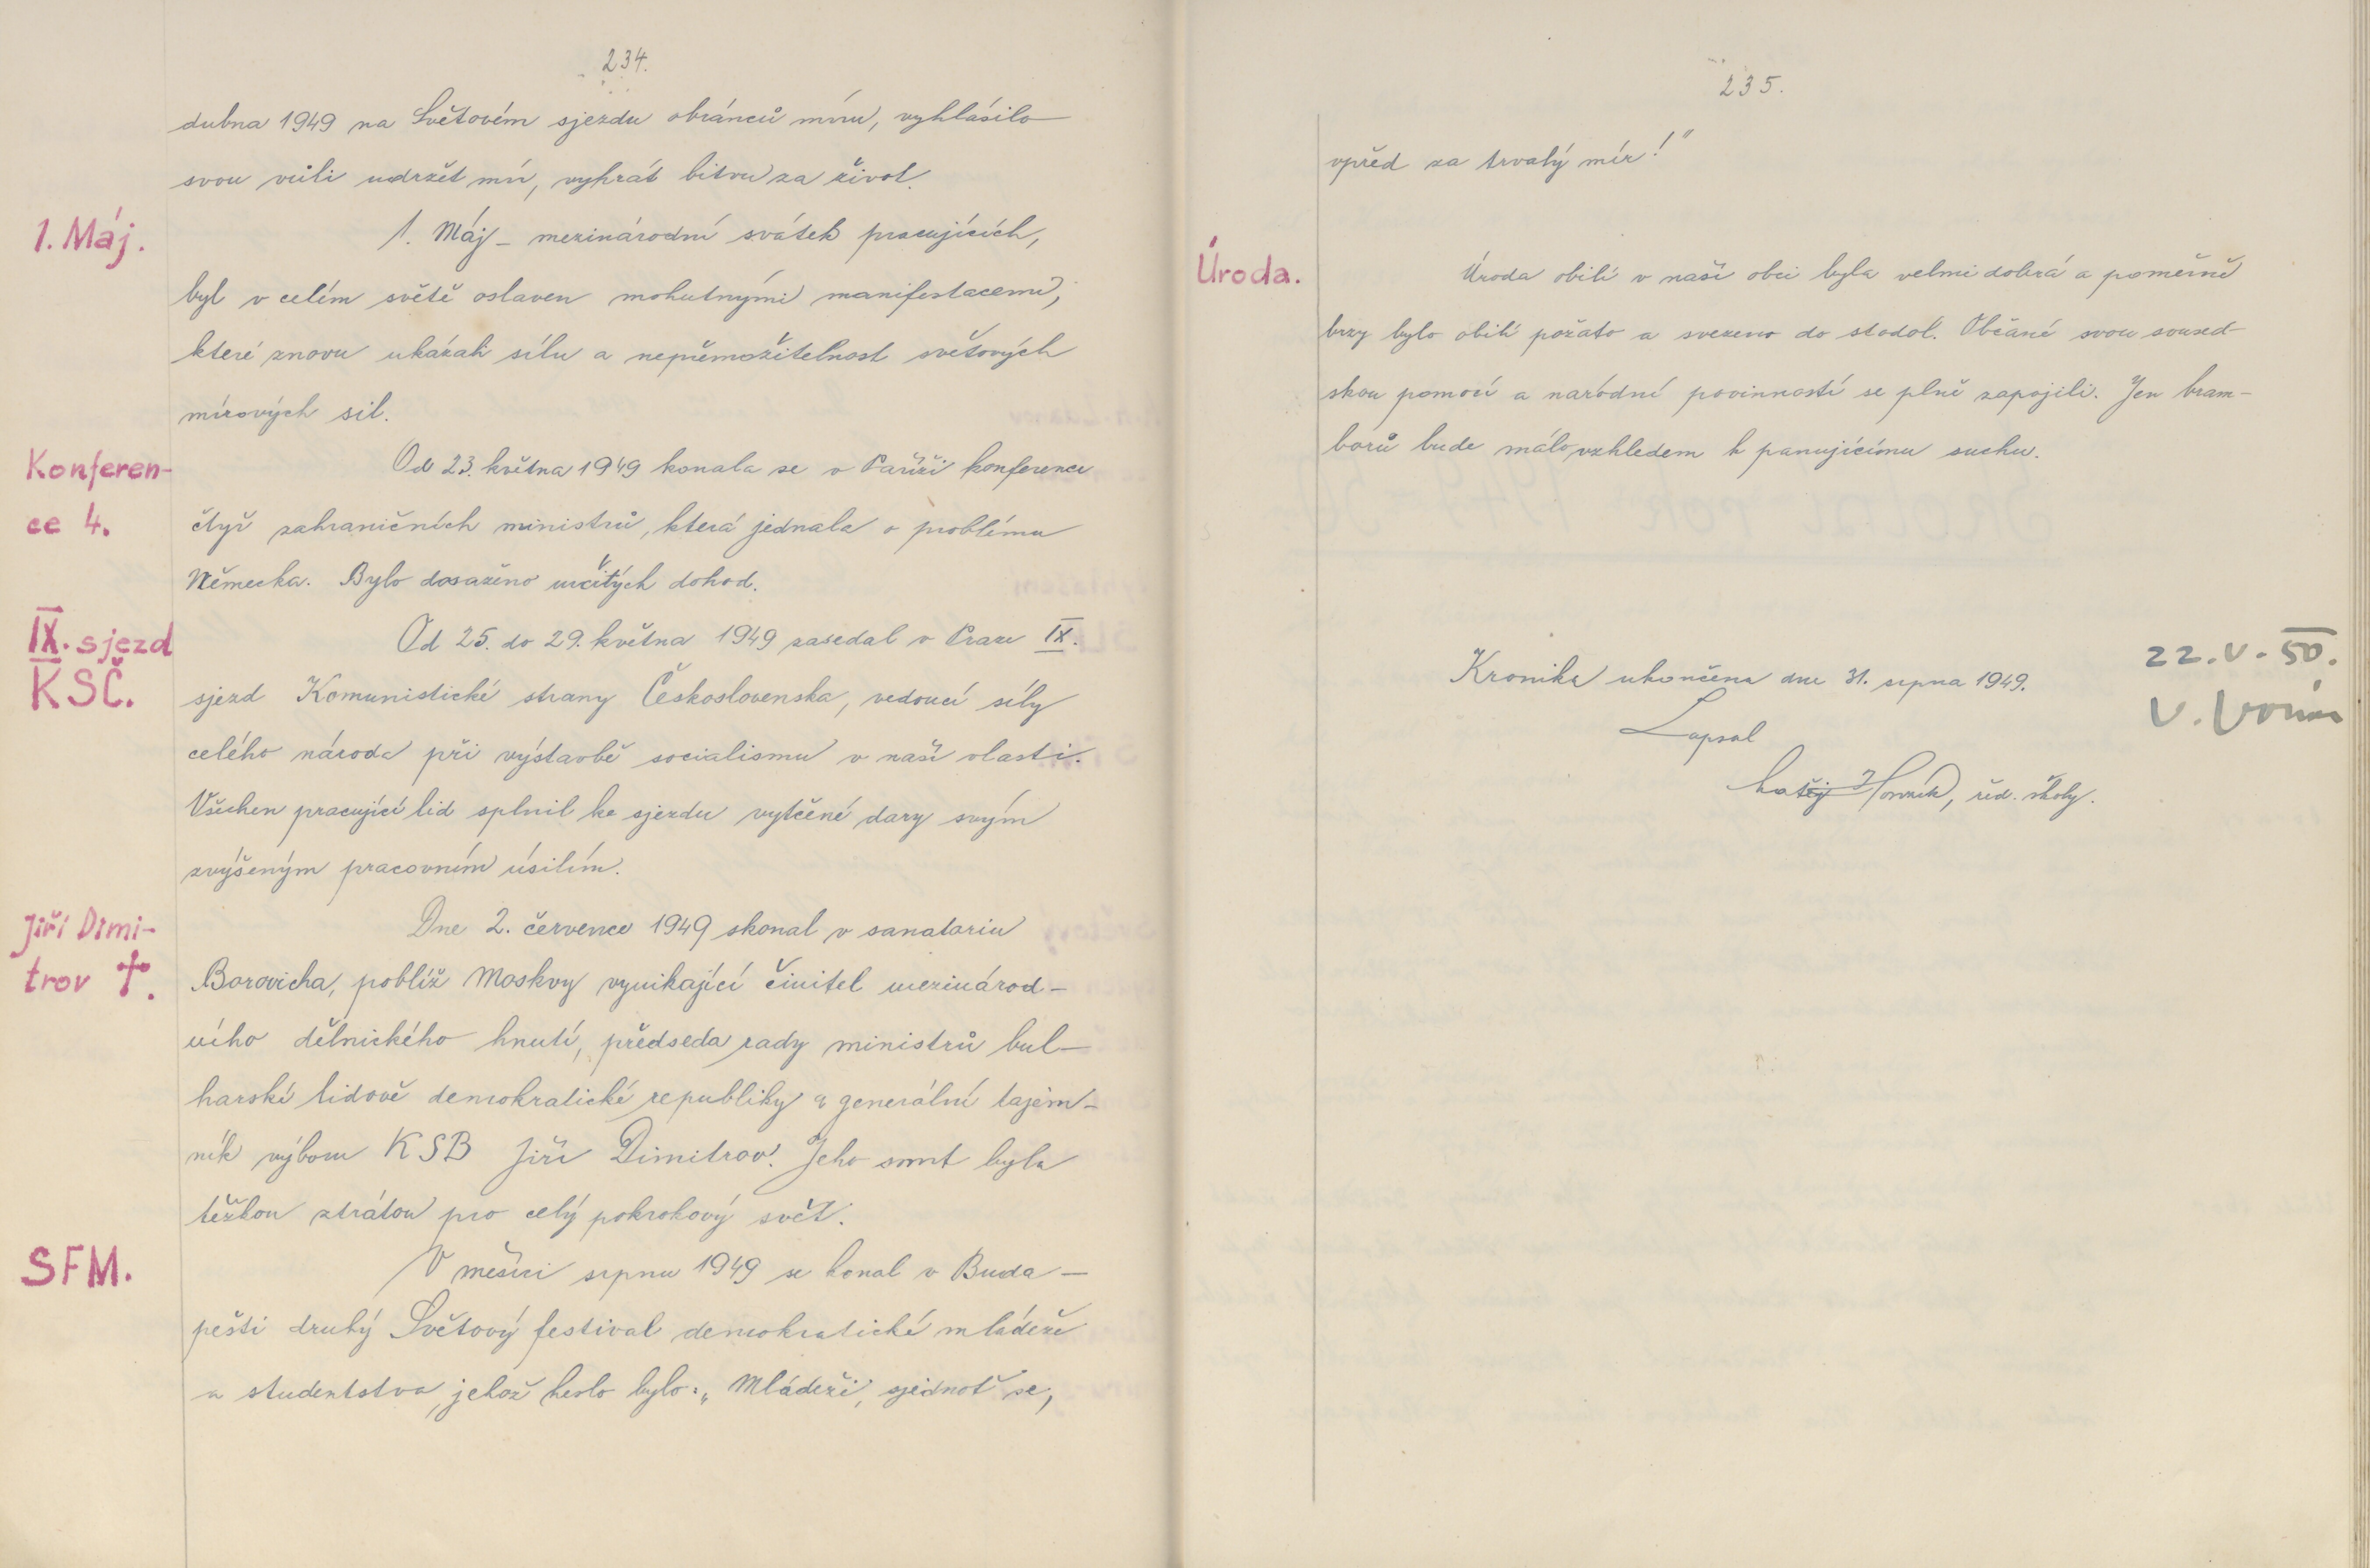 234.
dubna 1949 na Světovém sjezdu obránců míru, vyhlásilo
svou vůli udržet mír, vyhrát bitvu za život.
1. Máj.
1. Máj – mezinárodní svátek pracujících,
byl v celém světě oslaven mohutnými manifestacemi,
které znovu ukázali sílu a nepřemožitelnost světových
mírových sil.
Konferen-
ce 4.
Od 23. května 1949 konala se v Paříži konference
čtyř zahraničních ministrů, která jednala o problému
Německa. Bylo dosaženo určitých dohod.
IX. sjezd
KSČ.
Od 25. do 29. května 1949 zasedal v Praze IX.
sjezd Komunistické strany Československa, vedoucí síly
celého národa při výstavbě socialismu v naší vlasti.
Všechen pracující lid splnil ke sjezdu vytčené dary svým
zvýšeným pracovním úsilím.
Jiří Dimi-
trov †.
Dne 2. července 1949 skonal v sanatoriu
Borovicha, poblíž Moskvy vynikající činitel mezinárod-
ního dělnického hnutí, předseda rady ministrů bul-
harské lidově demokratické republiky a generální tajem-
ník výboru KSB Jiří Dimitrov. Jeho smrt byla
těžkou ztrátou pro celý pokrokový svět.
SFM.
V měsíci srpnu 1949 se konal v Buda-
pešti druhý Světový festival demokratické mládeže
a studentstva, jehož heslo bylo: „Mládeži, sjednoť se,
235.
vpřed za trvalý mír!"
Úroda.
Úroda obilí v naší obci byla velmi dobrá a poměrně
brzy bylo obilí požato a svezeno do stodol. Občané svou soused-
skou pomocí a národní povinností se plně zapojili. Jen bram-
borů bude málo vzhledem k panujícímu suchu.
Kronika ukončena dne 31. srpna 1949.
22. V. 50.
Zapsal
řed. školy.